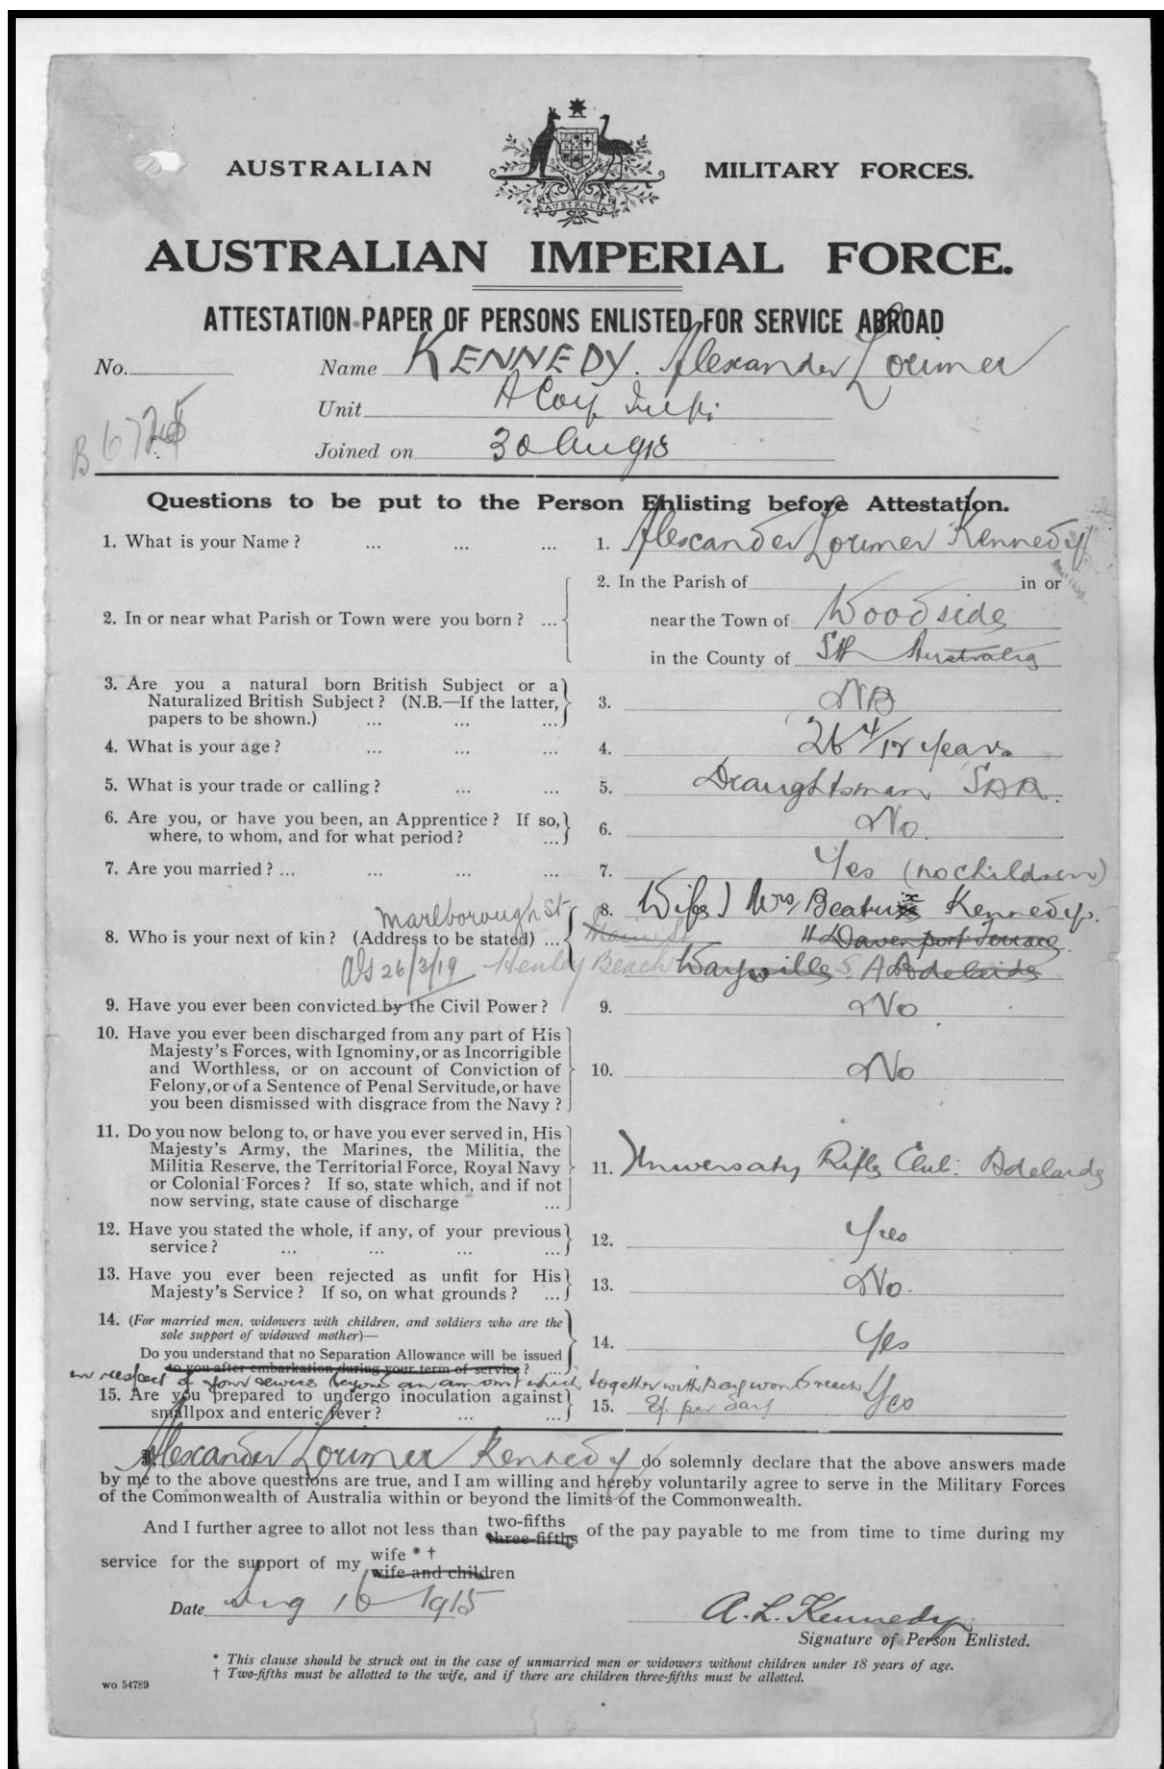 AUSTRALIAN MILITARY FORCES.
AUSTRALIA
AUSTRALIAN IMPERIAL FORCE.
ATTESTATION PAPER OF PERSONS ENLISTED FOR SERVICE ABROAD
No. Name KENNEDY. Alexander Lorimer
Unit A Coy
B 67
Joined on 30 Aug 15
Questions to be put to the Person Enlisting before Attestation.
1. What is your Name? ... ... ... 1. Alexander Lorimer Kennedy
2. In the Parish of in or
2. In or near what Parish or Town were you born? ... near the Town of Woodside
in the County of Sth Australia
3. Are you a natural born British Subject or a
Naturalized British Subject? (N.B.—If the latter, 3. NB
papers to be shown.) ... ... ...
4. What is your age? ... ... ... 4. 26 4/12 years
5. What is your trade or calling? ... ... 5. Draughtsman SAR.
6. Are you, or have you been, an Apprentice? If so,
where, to whom, and for what period? ... 6. No.
7. Are you married? ... ... ... ... 7. Yes (no children)
Marlborough St 8. Wife) Mrs Beatrix Kennedy.
8. Who is your next of kin? (Address to be stated) ... Main St 11 Davenport Terrace
26/3/19 Henley Beach Wayville S. A Adelaide
9. Have you ever been convicted by the Civil Power? 9. No
10. Have you ever been discharged from any part of His
Majesty's Forces, with Ignominy, or as Incorrigible
and Worthless, or on account of Conviction of 10. No
Felony, or of a Sentence of Penal Servitude, or have
you been dismissed with disgrace from the Navy?
11. Do you now belong to, or have you ever served in, His
Majesty's Army, the Marines, the Militia, the
Militia Reserve, the Territorial Force, Royal Navy 11. University Rifle Club. Adelaide
or Colonial Forces? If so, state which, and if not
now serving, state cause of discharge ...
12. Have you stated the whole, if any, of your previous
service? ... ... ... ... 12. Yes
13. Have you ever been rejected as unfit for His
Majesty's Service? If so, on what grounds? ... 13. No.
14. (For married men, widowers with children, and soldiers who are the
sole support of widowed mother)—
Do you understand that no Separation Allowance will be issued 14. Yes
to you after embarkation during your term of service? ...
in respect of your service beyond an amount which together with pay would reach
15. Are you prepared to undergo inoculation against 8/. per day
smallpox and enteric fever? ... ... 15. Yes
I, Alexander Lorimer Kennedy do solemnly declare that the above answers made
by me to the above questions are true, and I am willing and hereby voluntarily agree to serve in the Military Forces
of the Commonwealth of Australia within or beyond the limits of the Commonwealth.
And I further agree to allot not less than two-fifths three-fifths of the pay payable to me from time to time during my
service for the support of my wife * † wife and children
Date Aug 16 1915 A. L. Kennedy
Signature of Person Enlisted.
* This clause should be struck out in the case of unmarried men or widowers without children under 18 years of age.
† Two-fifths must be allotted to the wife, and if there are children three-fifths must be allotted.
WO 54789